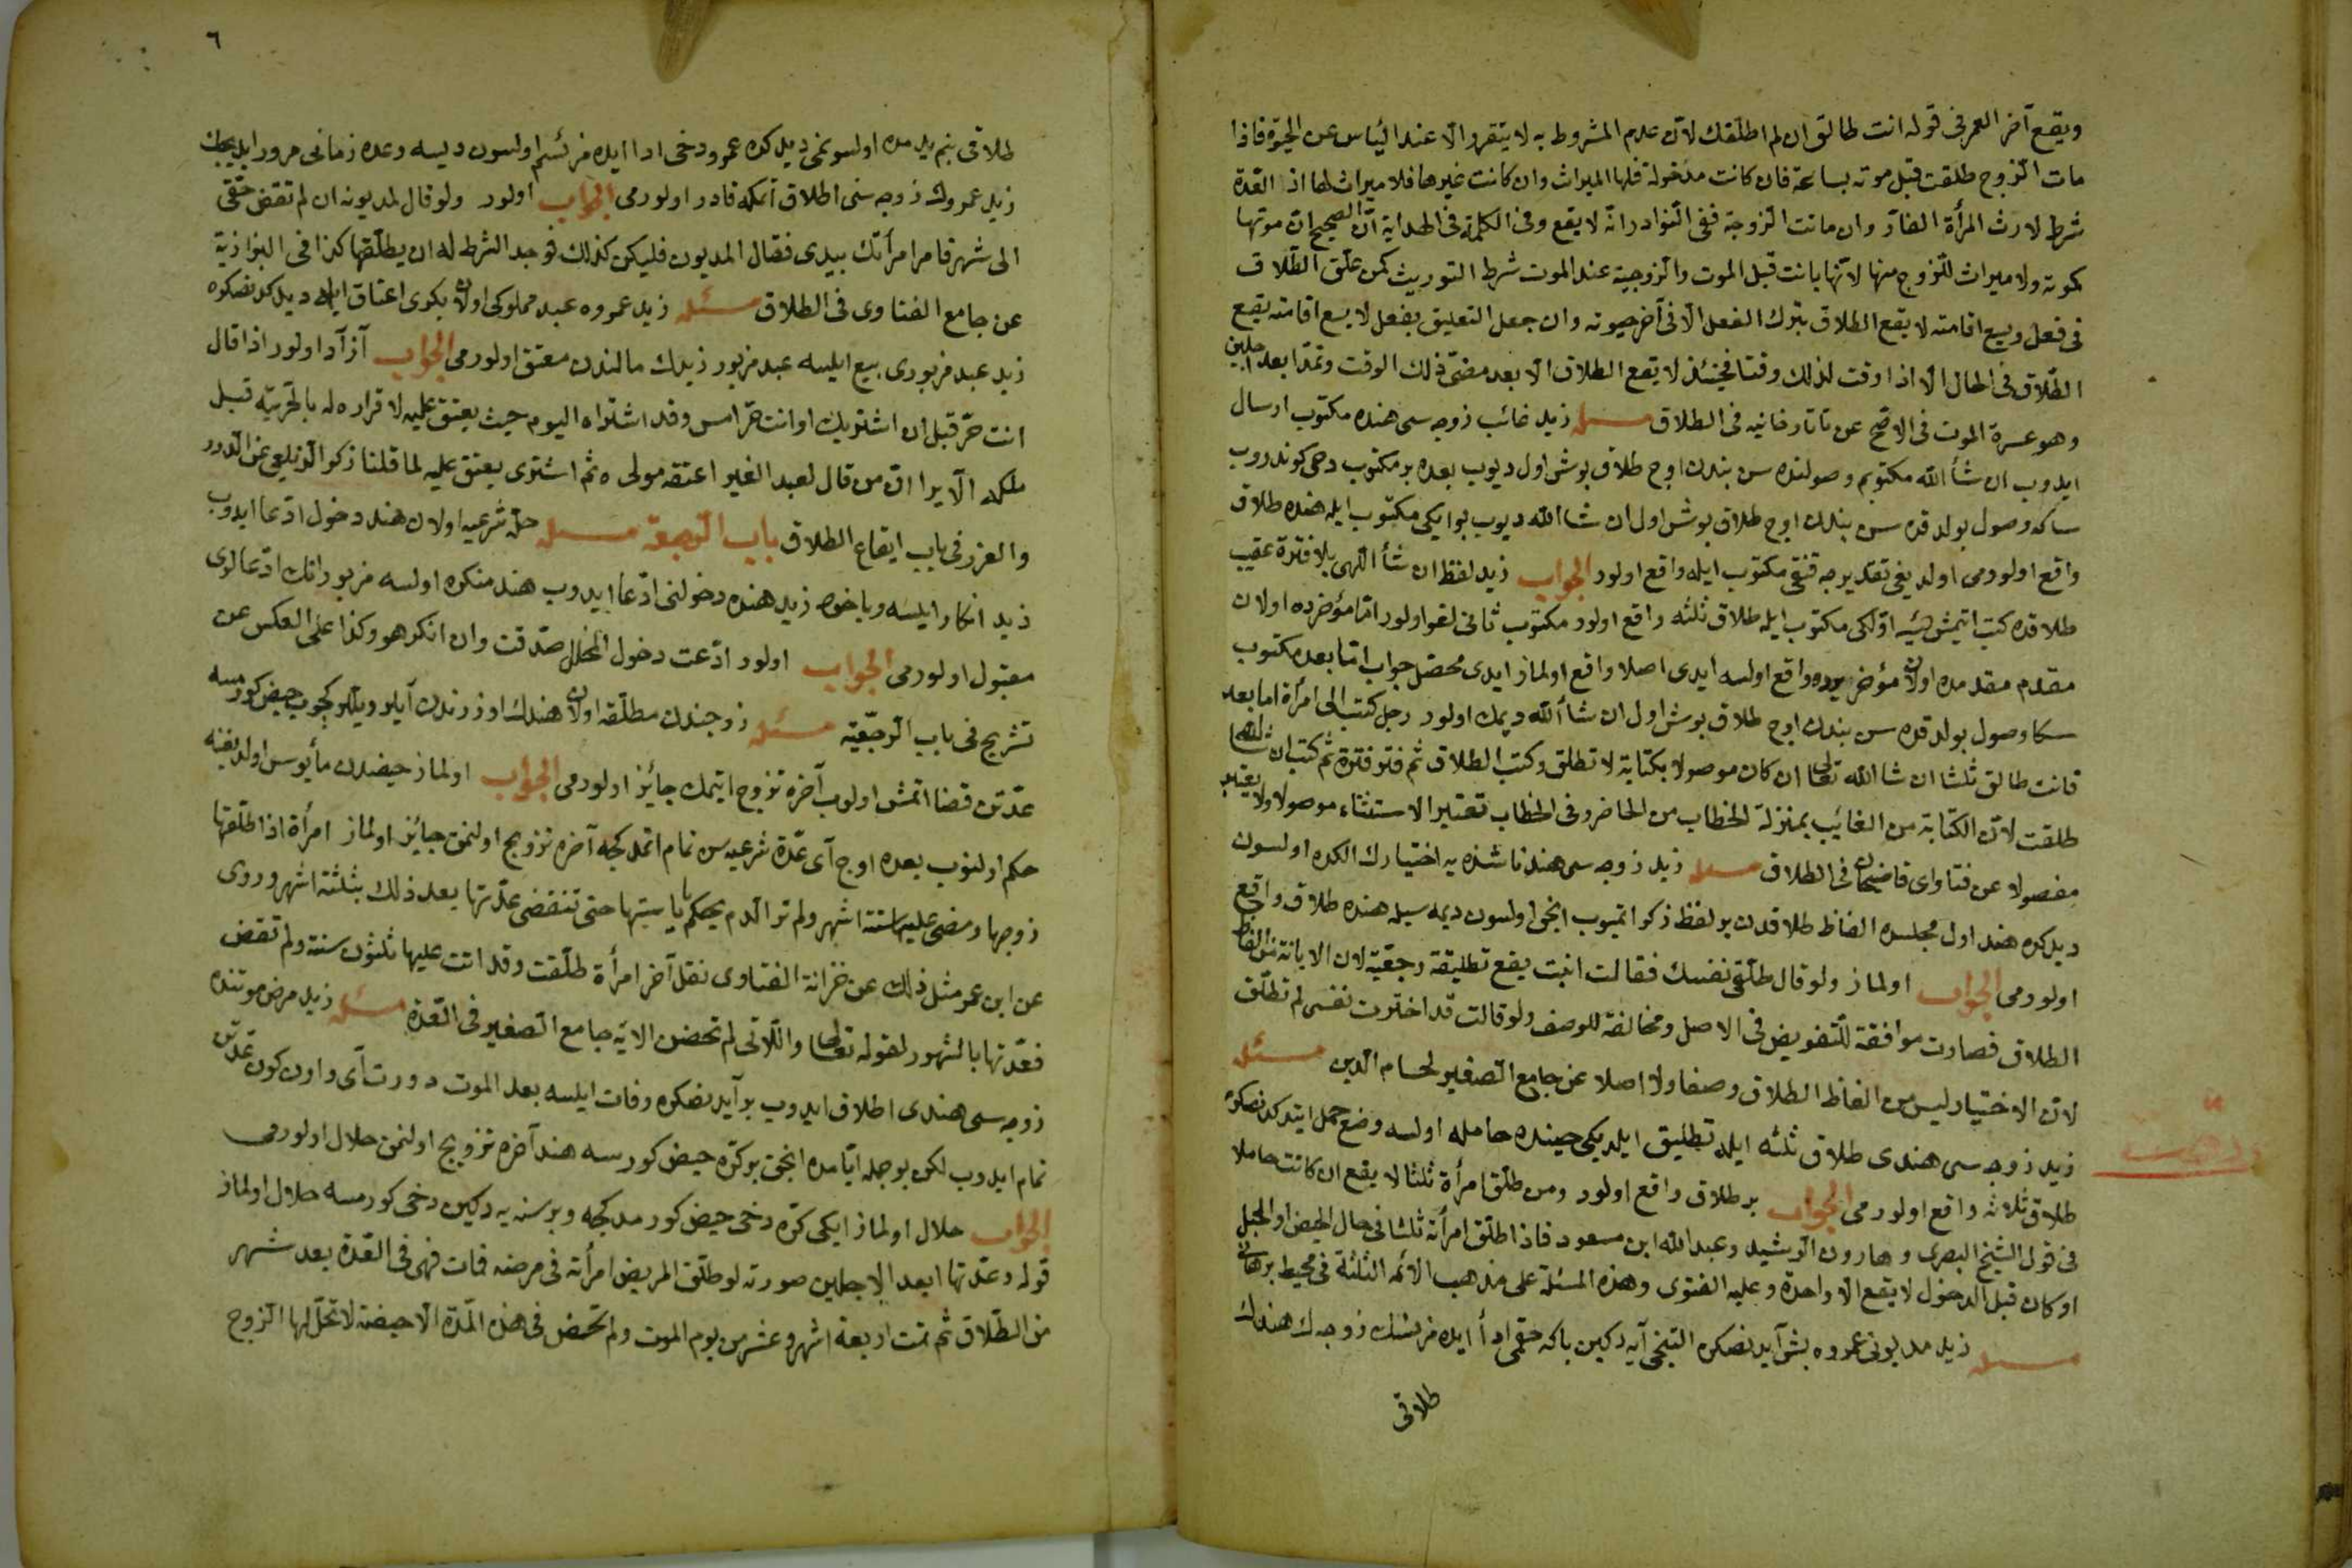 ويقع آخر العمر فى قوله انت طالق ان لم اطلقك لان عدم المشروط به لا يتقرر الا عند الياس عن الحيوة فاذا
مات الزوج طلقت قبل موته بساعة فان كانت مدخولة فلها الميراث وان كانت غيرها فلا ميراث لها اذ العدة
شرط لارث المرأة الفار وان ماتت الزوجة ففى النوادر انه لا يقع وفى الهداية ان الصحيح ان موتها
كموته ولا ميراث للزوج منها لانها بانت قبل الموت والزوجية عند الموت شرط التوريث كمن علق الطلاق
فى فعل ويسع اقامته لا يقع الطلاق بترك الفعل الا فى آخر حيوته وان جعل التعليق بفعل لا يسع اقامته يقع
الطلاق فى الحال الا اذا وقت لذلك وقتا فحينئذ لا يقع الطلاق الا بعد مضى ذلك الوقت وتعتد ابعد الاجلين
وهو عدة الموت فى الاصح عن تاتارخانيه فى الطلاق مسئله زيد غائب زوجه سى هنده مكتوب ارسال
ايدوب ان شأ الله مكتوبم وصولنده سن بندن اوچ طلاق بوش اول ديوب بعده بر مكتوب دخى كوندروب
سكا وصول بولدقده سن بندن اوچ طلاق بوش اول ان شا الله ديوب بو ايكى مكتوب ايله هنده طلاق
واقع اولورمى اولديغى تقديرجه قنغى مكتوب ايله واقع اولور الجواب زيد لفظ ان شأ اللهى بلا فترة عقيب
طلاقده كتب اتيمش ايسه اولكى مكتوب ايله طلاق ثلثه واقع اولور مكتوب ثانى لغو اولور اما مؤخرده اولان
مقدم مقدمده اولان مؤخر يرده واقع اولسه ايدى اصلا واقع اولماز ايدى محصل جواب اما بعد مكتوب
سكا وصول بولدقده سن بندن اوچ طلاق بوش اول ان شأ الله ديمك اولور رجل كتب الى امرأة اما بعد
فانت طالق ثلثا ان شا الله تعالى ان كان موصولا بكتابة لا تطلق وكتب الطلاق ثم فتر فترة ثم كتب ان شا الله
طلقت لان الكتابة من الغائب بمنزلة الخطاب من الحاضر وفى الخطاب تعتبر الاستثناء موصولا ولا يعتبر
مفصولا عن فتاواى قاضيخان فى الطلاق مسئله زيد زوجه سى هند ناشزه يه اختيارك الكده اولسون
ديدكده هند اول مجلسده الفاظ طلاقدن بر لفظ ذكر اتميوب انجق اولسون ديمه سيله هنده طلاق واقع
اولورمى الجواب اولماز ولو قال طلقى نفسك فقالت ابنت يقع تطليقة رجعية لان الابانة من الفاظ
الطلاق فصارت موافقة للتفويض فى الاصل ومخالفة للوصف ولو قالت قد اخترت نفسى لم تطلق
لان الاختيار ليس من الفاظ الطلاق وصفا ولا اصلا عن جامع الصغير لحسام الدين مسئله
زيد زوجه سى هندى طلاق ثلثه ايله تطليق ايلديكى حينده حامله اولسه وضع حمل ايتدكدنصكره
طلاق ثلاثه واقع اولورمى الجواب بر طلاق واقع اولور ومن طلق امرأة ثلثا لا يقع ان كانت حاملا
فى قول الشيخ البصرى و هارون الرشيد وعبد الله ابن مسعود فاذا طلق امرأته ثلثا فى حال الحيض او الحبل
او كان قبل الدخول لا يقع الا واحدة وعليه الفتوى وهذه المسئلة على مذهب الائمه الثلثة فى محيط برهانى
مسئله زيد مديونى عمروه بش آيدنصكره التنجى آيه دكين باكه حقمى ادا ايده مزسك زوجه ك هندك
طلاقى
٦
طلاقى بنم يدمده اولسونمى ديدكده عمرو دخى ادا ايده مزسم اولسون ديسه وعده زمانى مرور ايديجك
زيد عمروك زوجه سنى اطلاق اتمكه قادر اولورمى الجواب اولور ولو قال لمديونه ان لم تقض حقى
الى شهر فامر امرأتك بيدى فقال المديون فليكن كذلك فوجد الشرط له ان يطلقها كذا فى البزازية
عن جامع الفتاوى فى الطلاق مسئله زيد عمروه عبد مملوكى اولان بكرى اعتاق ايله ديدكدنصكره
زيد عبد مزبورى بيع ايلسه عبد مزبور زيدك مالندن معتق اولورمى الجواب آزاد اولور اذا قال
انت حر قبل ان اشتريك او انت حر امس وقد اشتراه اليوم حيث يعتق عليه لاقراره له بالحرية قبل
ملكه الا يرا ان من قال لعبد الغير اعتقه مولى ه ثم اشترى يعتق عليه لما قلنا ذكر الزيلعى عن الدرر
والغرر فى باب ايقاع الطلاق باب الرجعة مسئله حله شرعيه اولان هند دخول ادعا ايدوب
زيد انكار ايلسه وياخود زيد هنده دخولنى ادعا ايدوب هند منكره اولسه مزبور انك ادعالرى
مقبول اولورمى الجواب اولور ادعت دخول المحلل صدقت وان انكر هو وكذا على العكس عن
تشريح فى باب الرجعية مسئله زوجندن مطلقه اولان هندك اوزرندن آيلر ويللر كچوب حيض كورمسه
عدتن قضا اتمش اولوب آخره تزوج ايتمك جائز اولورمى الجواب اولماز حيضدن مأيوس اولديغنه
حكم اولنوب بعده اوچ آى عدة شرعيه سن تمام اتمدكجه آخره تزويج اولنمق جائز اولماز امرأة اذا طلقها
زوجها ومضى عليها ستة اشهر ولم تر الدم يحكم باياستها حتى تنقضى عدتها بعد ذلك بثلثة اشهر وروى
عن ابن عمر مثل ذلك عن خزانة الفتاوى نقل آخر امرأة طلقت وقد اتت عليها ثلثون سنة ولم تقض
فعدتها بالشهور لقوله تعالى واللاتى لم تحضن الايه جامع الصغير فى العدة مسئله زيد مرض موتنده
زوجه سى هندى اطلاق ايدوب بر آيدنصكره وفات ايلسه بعد الموت دورت آى واون كون عدتن
تمام ايدوب لكن بو جمله ايامده انجق بر كره حيض كورسه هند آخره تزويج اولنمق حلال اولورمى
الجواب حلال اولماز ايكى كره دخى حيض كورمدكجه وبر سنه يه دكين دخى كورمسه حلال اولماز
قوله وعدتها ابعد الاجلين صورته لو طلق المريض امرأته فى مرضه فمات فهى فى العدة بعد شهر
من الطلاق ثم تمت اربعة اشهر وعشر من يوم الموت ولم تحض فى هذه المدة الا حيضة لا تحل لها الزوج